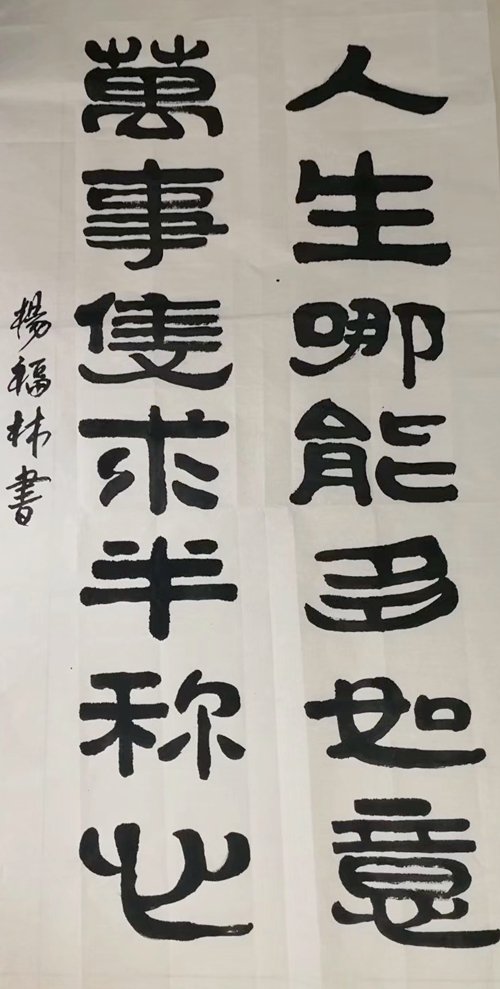 人生哪能多如意
萬事隻求半称心
楊福林書